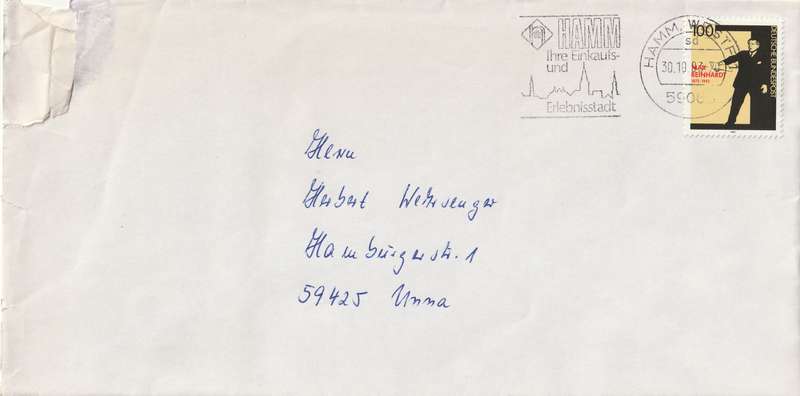 HAMM
Ihre Einkaufs-
und
Erlebnisstadt
HAMM, WESTF
sd
30.10.93
590
100
DEUTSCHE BUNDESPOST
MAX
REINHARDT
1873-1943
Herrn
Herbert
Hamburgerstr. 1
59425 Unna